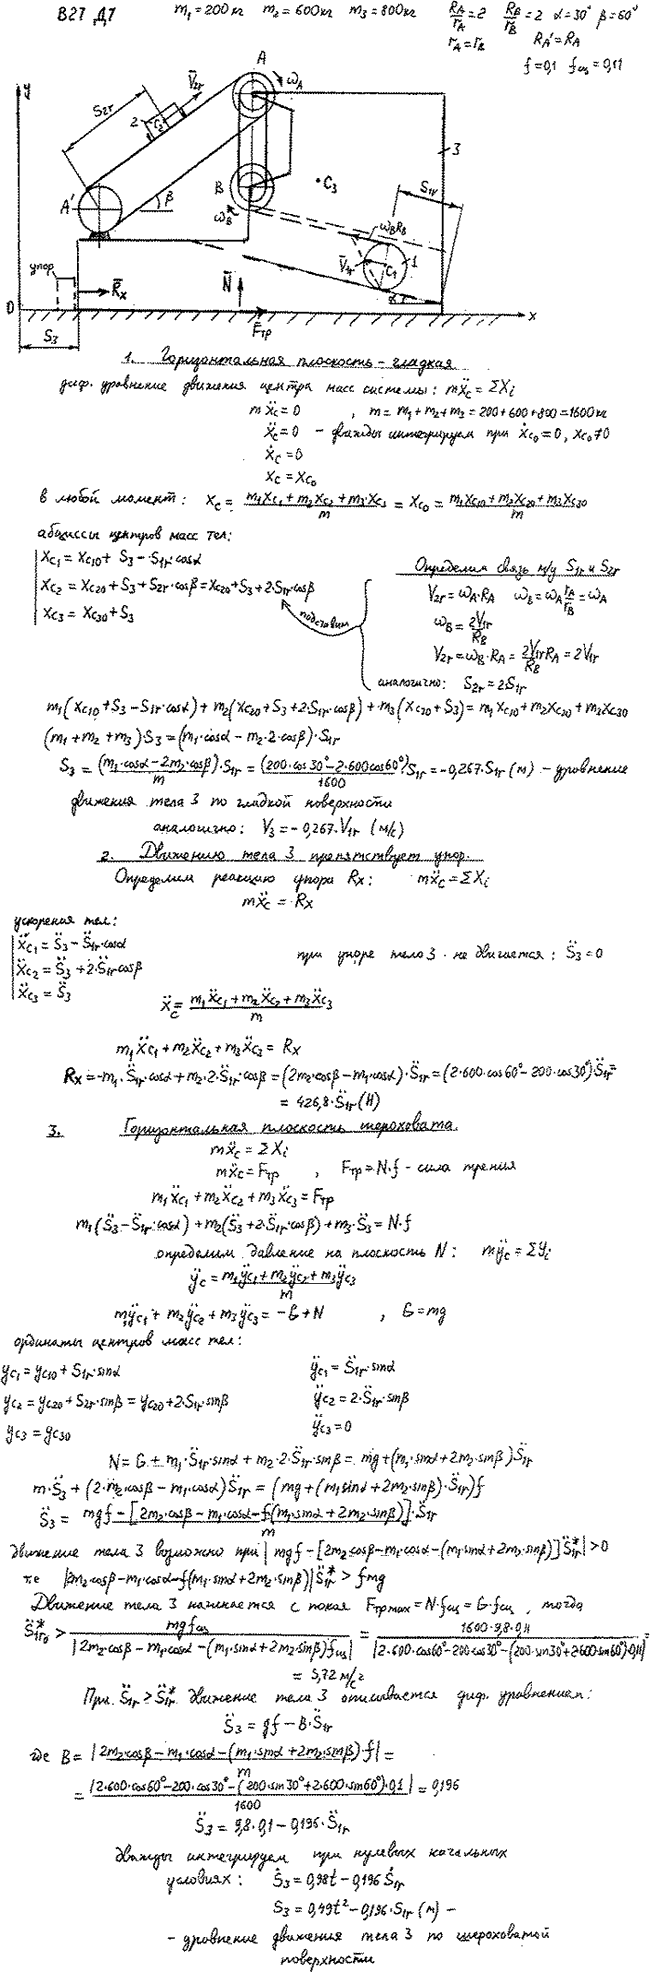 В27 Д7 m₁=200кг m₂=600кг m₃=800кг R_A/r_A=2 R_B/r_B=2 α=30° β=60°
r_A=r_B R_A'=R_A
f=0,1 f_сц=0,11
y
A
ω_A
V̄₂r
S₂r
2
C₂
3
B
C₃
S₁r
A'
β
ω_B
ω_B R_B
V̄₁r
C₁
1
α
упор
R̄x
N̄
0
F̄тр
x
S₃
1. Горизонтальная плоскость - гладкая
диф. уравнение движения центра масс системы: mẍ_C = ΣXi
mẍ_C = 0 , m = m₁+m₂+m₃ = 200+600+800 = 1600кг
ẍ_C = 0 - дважды интегрируем при ẋ_C0 = 0, x_C0 ≠ 0
ẋ_C = 0
x_C = x_C0
в любой момент: x_C = (m₁x_C1 + m₂x_C2 + m₃x_C3)/m = x_C0 = (m₁x_C10 + m₂x_C20 + m₃x_C30)/m
абциссы центров масс тел:
x_C1 = x_C10 + S₃ - S₁r·cosα
x_C2 = x_C20 + S₃ + S₂r·cosβ = x_C20 + S₃ + 2·S₁r·cosβ
x_C3 = x_C30 + S₃
подставим
Определим связь м/у S₁r и S₂r
V₂r = ω_A·R_A ω_B = ω_A r_A/r_B = ω_A
ω_B = 2V₁r/R_B
V₂r = ω_B·R_A = 2V₁r R_A/R_B = 2V₁r
аналогично: S₂r = 2·S₁r
m₁(x_C10 + S₃ - S₁r·cosα) + m₂(x_C20 + S₃ + 2·S₁r·cosβ) + m₃(x_C30 + S₃) = m₁x_C10 + m₂x_C20 + m₃x_C30
(m₁ + m₂ + m₃)·S₃ = (m₁·cosα - m₂·2·cosβ)·S₁r
S₃ = (m₁·cosα - 2m₂·cosβ)/m · S₁r = (200·cos30° - 2·600cos60°)/1600 S₁r = -0,267·S₁r (м) - уравнение
движения тела 3 по гладкой поверхности
аналогично: V₃ = -0,267·V₁r (м/с)
2. Движению тела 3 препятствует упор.
Определим реакцию упора Rx: mẍ_C = ΣXi
mẍ_C = Rx
ускорения тел:
ẍ_C1 = S̈₃ - S̈₁r·cosα
ẍ_C2 = S̈₃ + 2·S̈₁r cosβ
ẍ_C3 = S̈₃
при упоре тело 3 не двигается: S̈₃ = 0
ẍ_C = (m₁ẍ_C1 + m₂ẍ_C2 + m₃ẍ_C3)/m
m₁ẍ_C1 + m₂ẍ_C2 + m₃ẍ_C3 = Rx
Rx = -m₁·S̈₁r·cosα + m₂·2·S̈₁r·cosβ = (2m₂·cosβ - m₁·cosα)·S̈₁r = (2·600·cos60° - 200·cos30°)S̈₁r =
= 426,8·S̈₁r (Н)
3. Горизонтальная плоскость шероховата.
mẍ_C = ΣXi
mẍ_C = Fтр , Fтр = N·f - сила трения
m₁ẍ_C1 + m₂ẍ_C2 + m₃ẍ_C3 = Fтр
m₁(S̈₃ - S̈₁r·cosα) + m₂(S̈₃ + 2·S̈₁r·cosβ) + m₃·S̈₃ = N·f
определим давление на плоскость N: mÿ_C = ΣYi
ÿ_C = (m₁ÿ_C1 + m₂ÿ_C2 + m₃ÿ_C3)/m
m₁ÿ_C1 + m₂ÿ_C2 + m₃ÿ_C3 = -G + N , G = mg
ординаты центров масс тел:
y_C1 = y_C10 + S₁r·sinα ÿ_C1 = S̈₁r·sinα
y_C2 = y_C20 + S₂r·sinβ = y_C20 + 2·S₁r·sinβ ÿ_C2 = 2·S̈₁r·sinβ
y_C3 = y_C30 ÿ_C3 = 0
N = G + m₁·S̈₁r·sinα + m₂·2·S̈₁r·sinβ = mg + (m₁·sinα + 2m₂·sinβ)S̈₁r
m·S̈₃ + (2·m₂·cosβ - m₁·cosα)S̈₁r = (mg + (m₁sinα + 2m₂·sinβ)·S̈₁r)f
S̈₃ = (mgf - [2m₂·cosβ - m₁·cosα - f(m₁·sinα + 2m₂·sinβ)]·S̈₁r)/m
движение тела 3 возможно при |mgf - [2m₂·cosβ - m₁·cosα - (m₁·sinα + 2m₂·sinβ)]S̈*₁r| > 0
т.е |2m₂·cosβ - m₁·cosα - f(m₁·sinα + 2m₂·sinβ)|S̈*₁r > fmg
Движение тела 3 начинается с покоя Fтр max = N·fсц = G·fсц , тогда
S̈*₁r₀ > mgfсц/|2m₂·cosβ - m₁·cosα - (m₁·sinα + 2m₂·sinβ)fсц| = 1600·9,8·0,11/|2·600·cos60° - 200·cos30° - (200·sin30° + 2·600·sin60°)·0,11| =
= 5,72 м/с²
При S̈₁r ≥ S̈*₁r движение тела 3 описывается диф. уравнением:
S̈₃ = gf - B·S̈₁r
где B = |2m₂·cosβ - m₁·cosα - (m₁·sinα + 2m₂·sinβ)·f|/m =
= |2·600·cos60° - 200·cos30° - (200·sin30° + 2·600·sin60°)·0,1|/1600 = 0,196
S̈₃ = 9,8·0,1 - 0,196·S̈₁r
дважды интегрируем при нулевых начальных
условиях: Ṡ₃ = 0,98t - 0,196Ṡ₁r
S₃ = 0,49t² - 0,196·S₁r (м) -
- уравнение движения тела 3 по шероховатой
поверхности